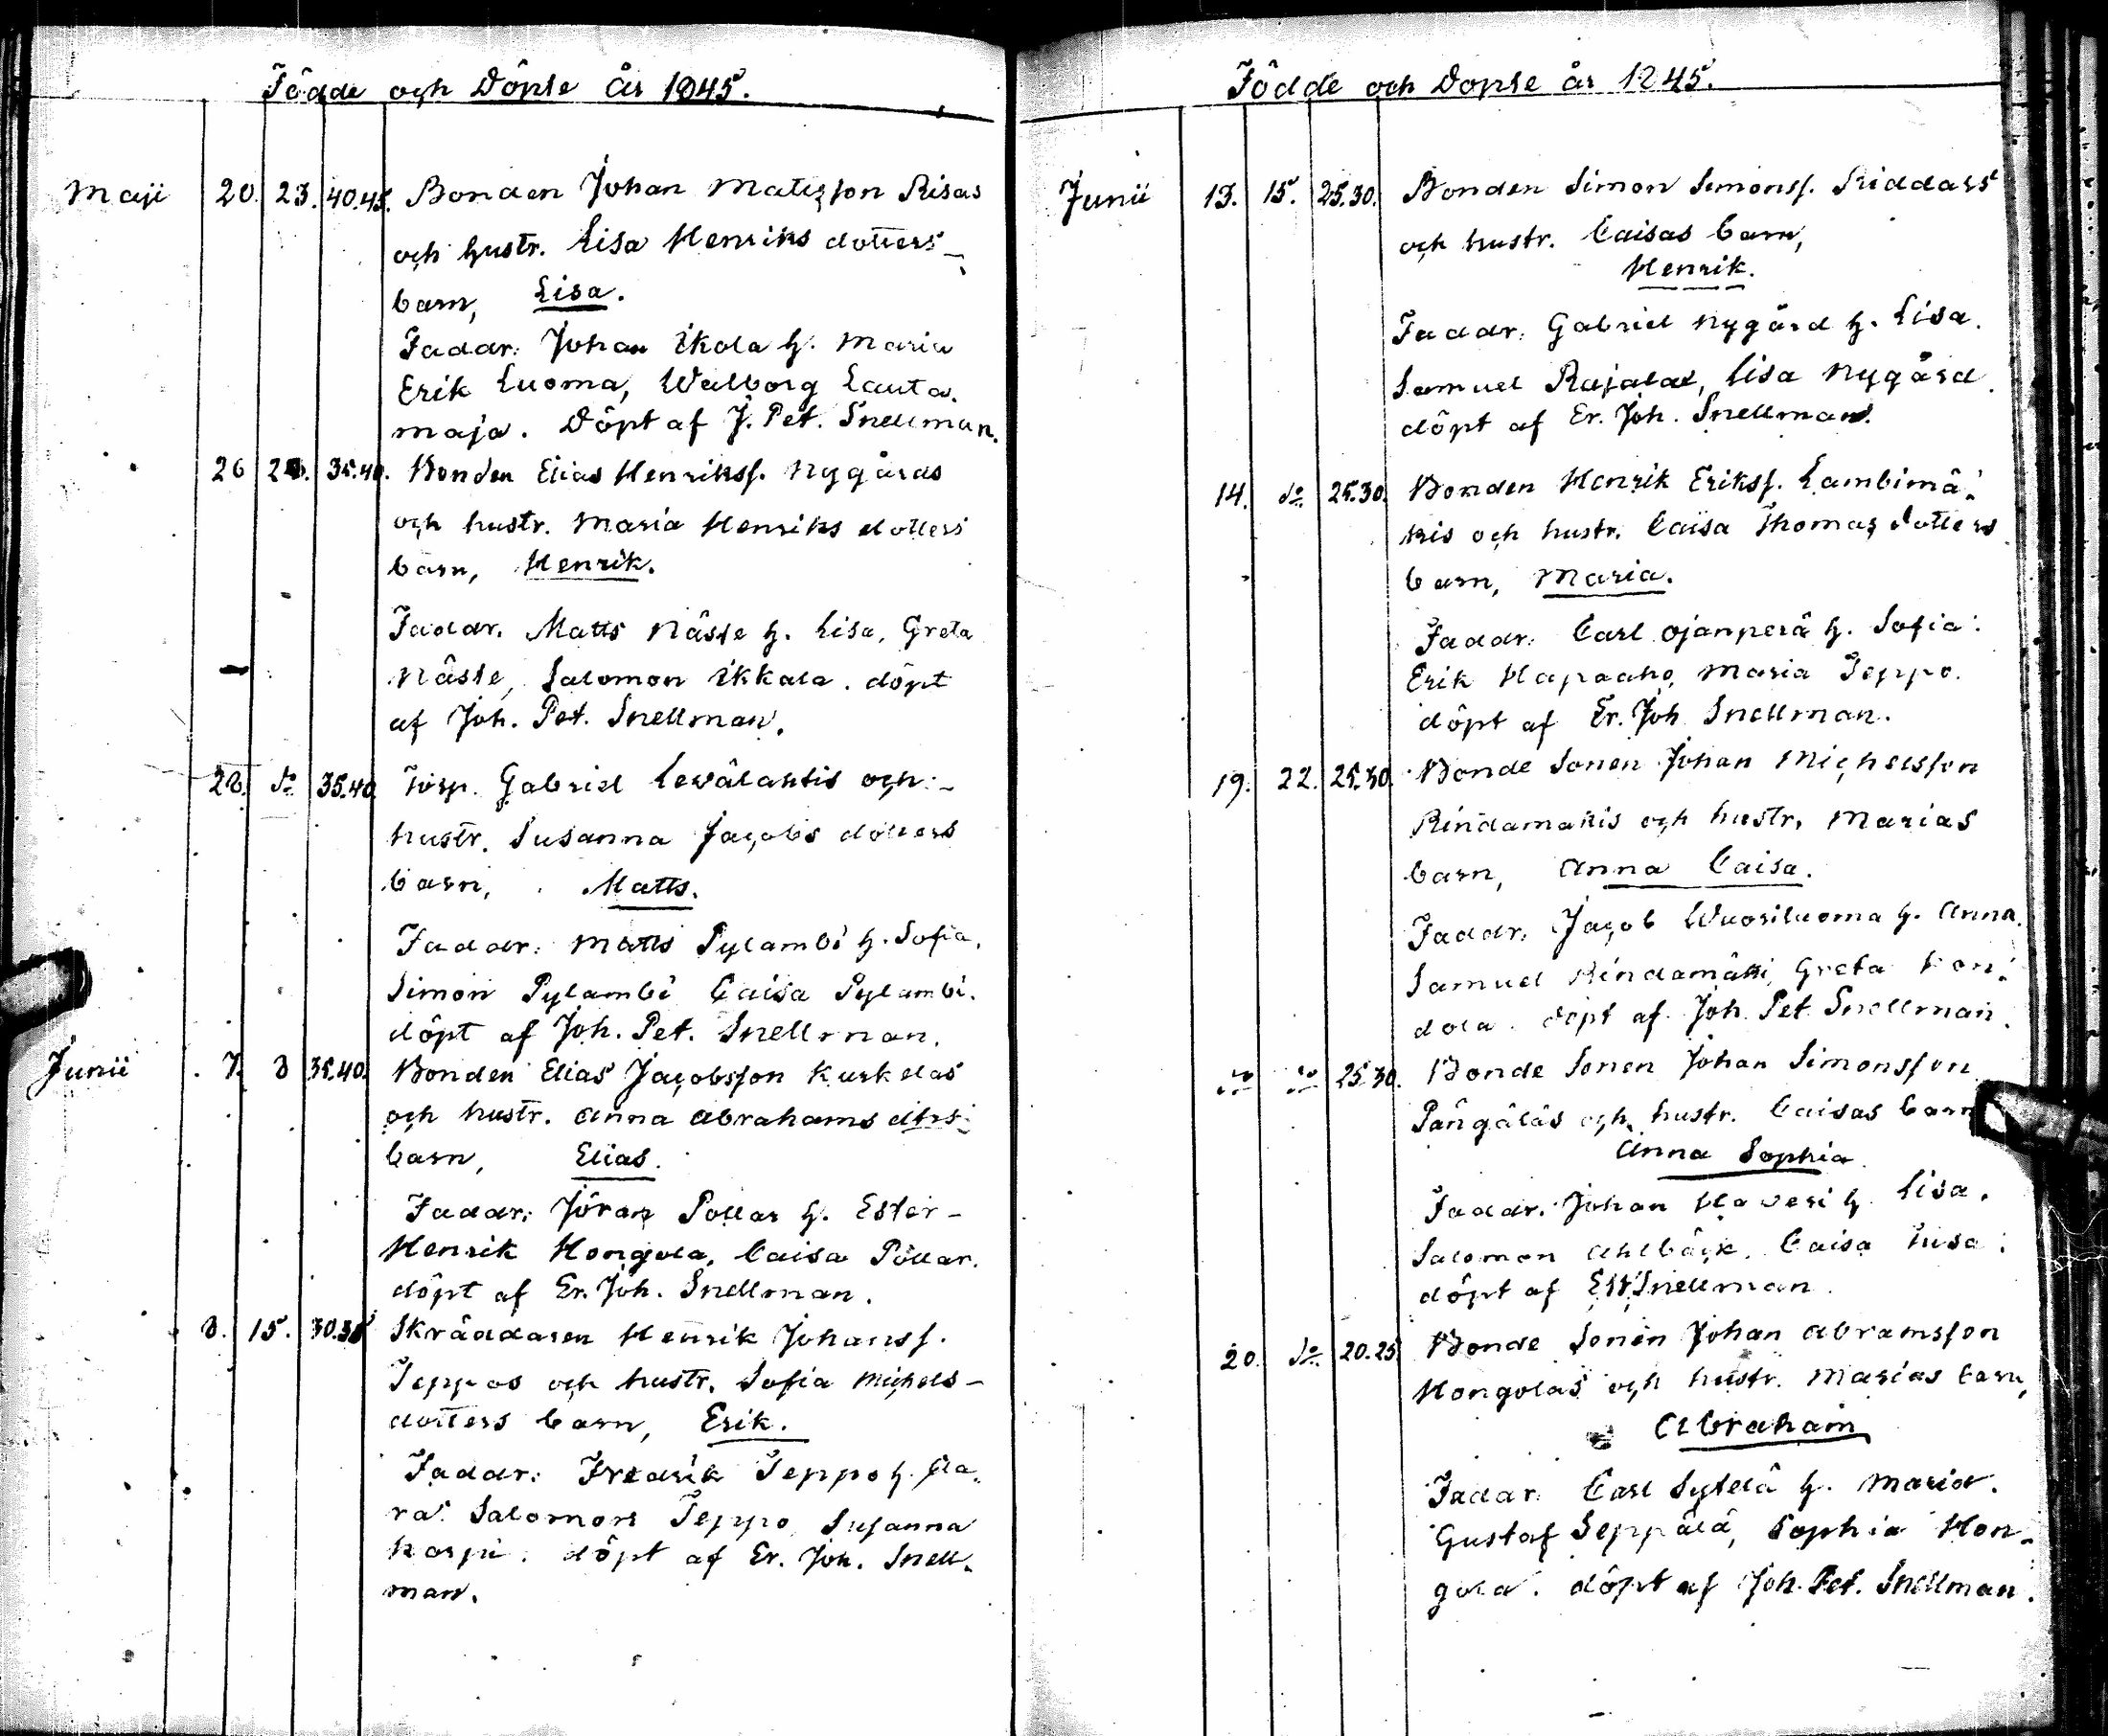 Födde och Döpte år 1845.
Maji 20. 23. 40.45. Bonden Johan Matsson Risas
och hustr. Lisa Henriks dotters
barn, Lisa.
Faddr. Johan Ikola h. Maria
Erik Luoma, Walborg Lauta-
maja. Döpt af J. Pet. Snellman.
26 28. 35.40. Bonden Elias Henrikss. Nygårds
och hustr. Maria Henriks dotters
barn, Henrik.
Faddr. Matts Nässe h. Lisa, Greta
Nässe, Salomon Ikkala. döpt
af Joh. Pet. Snellman.
28. do 35.40. Torp. Gabriel Levälahtis och
hustr. Susanna Jacobs dotters
barn, Matts.
Faddr: Matts Pylambi h. Sofia.
Simon Pylambi Caisa Pylambi.
döpt af Joh. Pet. Snellman.
Junii 7. 8 35.40. Bonden Elias Jacobsson Kurkelas
och hustr. Anna Abrahams dtrs
barn, Elias.
Faddr: Jöran Pollar h. Ester-
Henrik Hongola, Caisa Pollar.
döpt af Er. Joh. Snellman.
8. 15. 30.35 Skräddaren Henrik Johanss.
Seppos och hustr. Sofia Michels-
dotters barn, Erik.
Faddr: Fredrik Seppo h. Cla-
ra. Salomon Seppo, Susanna
Korpi. döpt af Er. Joh. Snell-
man.
Födde och Döpte år 1845.
Junii 13. 15. 25.30. Bonden Simon Simonss. Riddars
och hustr. Caisas barn,
Henrik.
Faddr: Gabriel Nygård h. Lisa.
Samuel Rajalat, Lisa Nygård.
döpt af Er. Joh. Snellman.
14. do 25.30. Bonden Henrik Erikss. Lambimä-
kis och hustr. Caisa Thomas dotters
barn, Maria.
Faddr: Carl Ojanperä h. Sofia.
Erik Hapaaho, Maria Seppo.
döpt af Er. Joh Snellman.
19. 22. 25.30. Bonde Sonen Johan Michelsson
Rindamäkis och hustr. Marias
barn, Anna Caisa.
Faddr: Jacob Wuoriluoma h. Anna.
Samuel Rindamäki, Greta Kan-
dola. döpt af Joh. Pet Snellman.
do do 25.30. Bonde Sonen Johan Simonsson
Pängäläs och hustr. Caisas barn
Anna Sophia.
Faddr. Johan Haveri h. Lisa.
Salomon Ahlbäck. Caisa
döpt af Snellman.
20. do 20.25. Bonde Sonen Johan Abramsson
Hongolas och hustr. Marias barn,
Abraham
Faddr: Carl Sytelä h. Maria.
Gustaf Seppälä, Sophia Hon-
gola. döpt af Joh. Pet. Snellman.